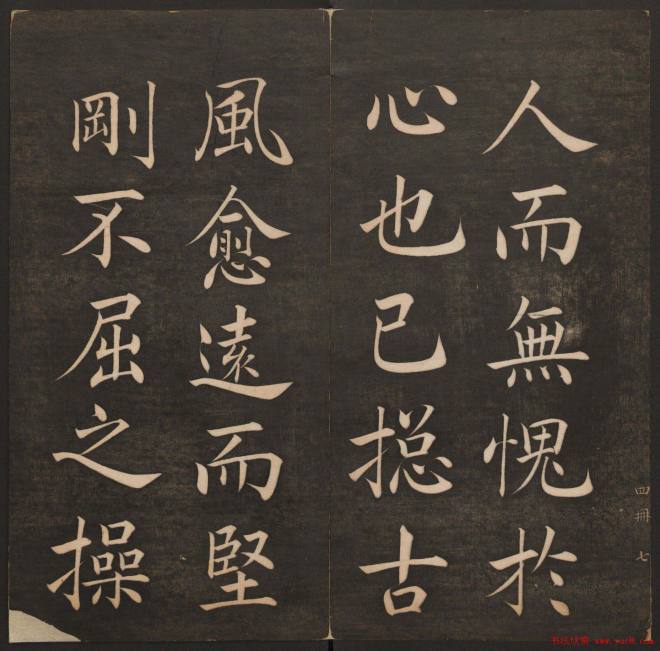 人而無愧於
心也已揔古
風愈遠而堅
剛不屈之操
四冊 七
书法欣赏 www.yac8.com